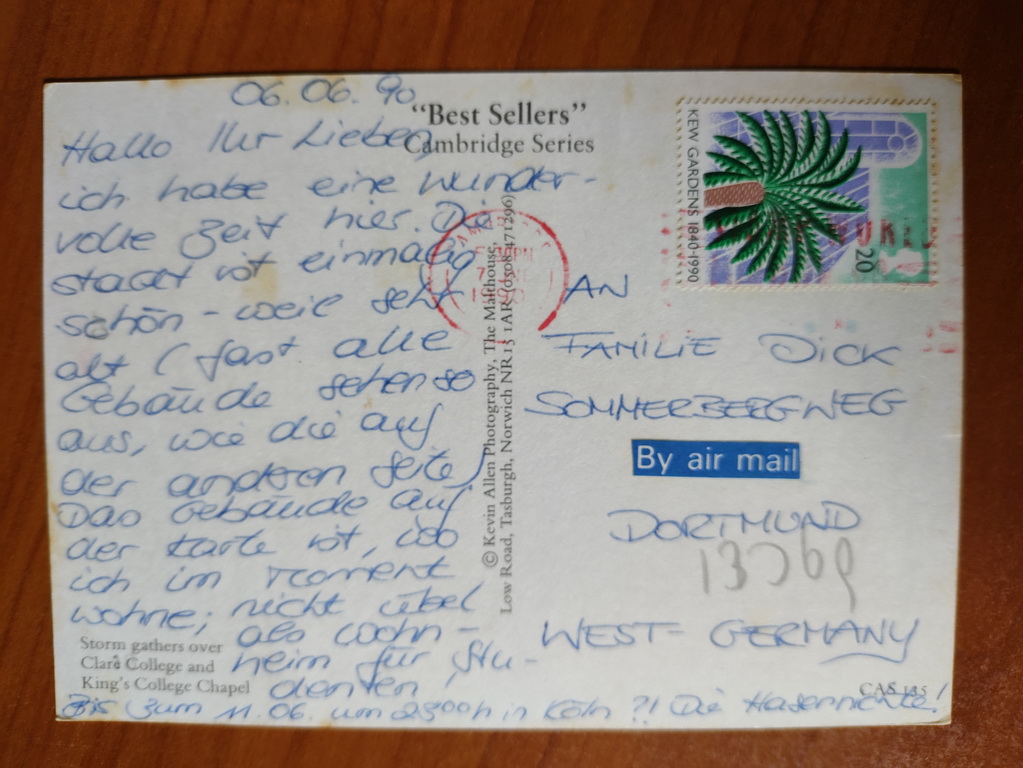 06.06.90
Hallo Ihr Lieben,
ich habe eine wunder-
volle Zeit hier. Die
Stadt ist einmalig
schön - weil sehr
alt (fast alle
Gebäude sehen so
aus, wie die auf
der anderen Seite)
Das Gebäude auf
der Karte ist, wo
ich im Moment
wohne; nicht übel
als Wohn-
heim für Stu-
denten!
Bis zum 11.06. um 2300h in Köln ?! Die Hasennichte!
Storm gathers over
Clare College and
King's College Chapel
"Best Sellers"
Cambridge Series
© Kevin Allen Photography, The Malthouse,
Low Road, Tasburgh, Norwich NR15 1AR (0508 471296)
KEW GARDENS 1840-1990
20
1990
AN
FAMILIE DICK
SOMMERBERGWEG
By air mail
DORTMUND
WEST-GERMANY
CAS 135